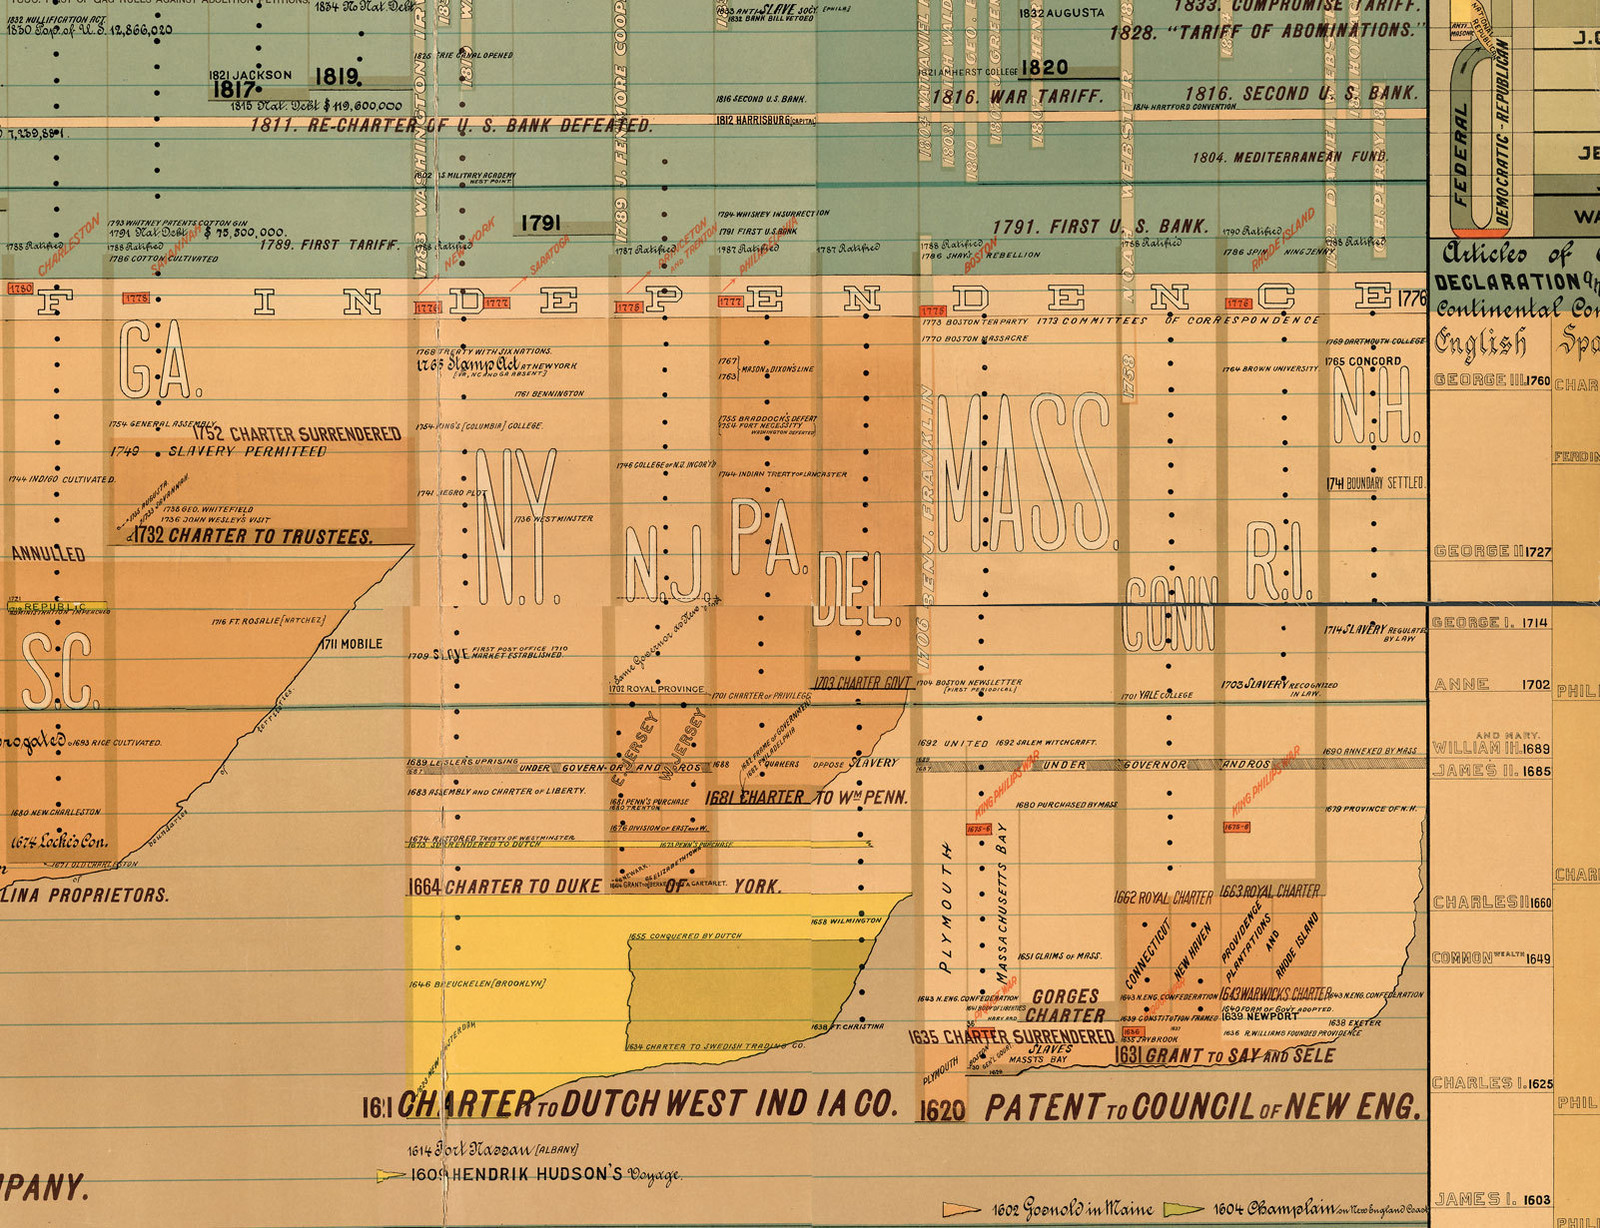 1832 NULLIFICATION ACT.
1830 Pop. of U.S. 12,866,020
1834 No Nat. Debt
1833 ANTI-SLAVE SOCY. [PHILA]
1832 BANK BILL VETOED
1832 AUGUSTA
1833. COMPROMISE TARIFF.
1828. "TARIFF OF ABOMINATIONS."
1825 ERIE CANAL OPENED
1821 JACKSON
1817
1819
1821 AMHERST COLLEGE
1820
1815 Nat. Debt $119,600,000
1816 SECOND U.S. BANK.
1816. WAR TARIFF.
1816. SECOND U. S. BANK.
1814 HARTFORD CONVENTION
1811. RE-CHARTER OF U. S. BANK DEFEATED.
1812 HARRISBURG [CAPITAL]
7,239,881
1804. MEDITERRANEAN FUND.
1802 U.S. MILITARY ACADEMY
WEST POINT.
1783 WASHINGTON
1789 J. FENIMORE COOP
1758 NOAH WEBSTER
1706 BENJ. FRANKLIN
1793 WHITNEY PATENTS COTTON GIN
1791 Nat. Debt $ 75,500,000.
1791
1794 WHISKEY INSURRECTION
1791 FIRST U.S. BANK
1791. FIRST U. S. BANK.
1789. FIRST TARIFF.
1788 Ratified
1788 Ratified
1788 Ratified
1787 Ratified
1987 Ratified
1787 Ratified
1788 Ratified
1788 Ratified
1790 Ratified
1788 Ratified
1786 COTTON CULTIVATED
1786 SHAYS REBELLION
CHARLESTON
SAVANNAH
NEW YORK
SARATOGA
PRINCETON
AND TRENTON
PHILADELPHIA
BOSTON
RHODE ISLAND
1780
1778
1776
1777
1776
1777
1775
1776
F I N D E P E N D E N C E 1776
1773 BOSTON TEA PARTY
1773 COMMITTEES OF CORRESPONDENCE
1770 BOSTON MASSACRE
1769 DARTMOUTH COLLEGE
1768 TREATY WITH SIX NATIONS.
1765 Stamp Act AT NEW YORK
[VA, NC AND GA ABSENT]
1767
1763
MASON & DIXON'S LINE
1764 BROWN UNIVERSITY
1765 CONCORD
GA.
1761 BENNINGTON
1755 BRADDOCK'S DEFEAT
1754 FORT NECESSITY
WASHINGTON DEFEATED
1754 GENERAL ASSEMBLY
1752 CHARTER SURRENDERED
1749 SLAVERY PERMITEED
1754 KING'S [COLUMBIA] COLLEGE.
MASS.
N.H.
1744 INDIGO CULTIVATED.
1746 COLLEGE OF N.J. INCOR'D
1744 INDIAN TREATY OF LANCASTER
1741 BOUNDARY SETTLED.
1741 NEGRO PLOT
1735 AUGUSTA
1733 SAVANNAH.
1738 GEO. WHITEFIELD
1736 JOHN WESLEY'S VISIT
1736 WESTMINSTER
1732 CHARTER TO TRUSTEES.
N.Y.
N.J.
PA.
DEL.
CONN
R.I.
ANNULLED
1721
REPUBLIC
1716 FT. ROSALIE [NATCHEZ]
S.C.
1711 MOBILE
1714 SLAVERY REGULATED
BY LAW
1709 SLAVE MARKET ESTABLISHED.
FIRST POST OFFICE 1710
Same Governor as New York
1702 ROYAL PROVINCE
1701 CHARTER OF PRIVILEGE
1703 CHARTER GOVT
1704 BOSTON NEWSLETTER
[FIRST PERIODICAL]
1701 YALE COLLEGE
1703 SLAVERY RECOGNIZED
IN LAW.
1693 RICE CULTIVATED.
boundaries of territories.
E. JERSEY
W. JERSEY
1682 FRAME OF GOVERNMENT
1682 PHILADELPHIA
1692 UNITED
1692 SALEM WITCHCRAFT.
1690 ANNEXED BY MASS
1689 LEISLERS UPRISING
UNDER GOVERNOR ANDROS
1688 QUAKERS OPPOSE SLAVERY
UNDER GOVERNOR ANDROS
1683 ASSEMBLY AND CHARTER OF LIBERTY.
1681 CHARTER TO WM PENN.
1681 PENN'S PURCHASE
1680 TRENTON
1680 NEW CHARLESTON
KING PHILIPS WAR
KING PHILIPS WAR
1675-6
1675-6
1680 PURCHASED BY MASS
1679 PROVINCE OF N.H.
1676 DIVISION OF EAST AND W.
1674 Locke's Con.
1674 RESTORED TREATY OF WESTMINSTER
1673 SURRENDERED TO DUTCH
1673 PENN'S PURCHASE
1671 OLD CHARLESTON
LINA PROPRIETORS.
1664 CHARTER TO DUKE OF YORK.
1662 ROYAL CHARTER
1663 ROYAL CHARTER
PLYMOUTH
MASSACHUSETTS BAY
1658 WILMINGTON
1655 CONQUERED BY DUTCH
CONNECTICUT
NEW HAVEN
PROVIDENCE
PLANTATIONS
AND
RHODE ISLAND
1651 CLAIMS OF MASS.
1646 BREUCKELEN [BROOKLYN]
1643 N. ENG. CONFEDERATION
GORGES
CHARTER
1643 N. ENG. CONFEDERATION
1643 WARWICKS CHARTER
1643 N. ENG. CONFEDERATION
1640 FORM OF GOVT ADOPTED.
1639 NEWPORT
1639 CONSTITUTION FRAMED
1638 FT. CHRISTINA
1638 EXETER
1636 R. WILLIAMS FOUNDED PROVIDENCE
1635 CHARTER SURRENDERED.
1635 SAYBROOK
1634 CHARTER TO SWEDISH TRADING CO.
SLAVES
MASSTS BAY
PLYMOUTH
1631 GRANT TO SAY AND SELE
1611 CHARTER TO DUTCH WEST INDIA CO.
1620 PATENT TO COUNCIL OF NEW ENG.
1614 Fort Nassau [ALBANY]
1609 HENDRIK HUDSON'S Voyage.
MPANY.
1602 Gosnold in Maine
1604 Champlain on New England Coast
FEDERAL
DEMOCRATIC-REPUBLICAN
NATIONAL REPUBLICAN
ANTI-MASONIC
J.Q
JE
WA
Articles of
DECLARATION
Continental Con
English
Spa
GEORGE III. 1760
CHAR
FERDIN
GEORGE II 1727
GEORGE I. 1714
ANNE 1702
PHIL
AND MARY.
WILLIAM III. 1689
JAMES II. 1685
CHAR
CHARLES II 1660
COMMONWEALTH 1649
CHARLES I. 1625
PHIL
JAMES I. 1603
PHIL